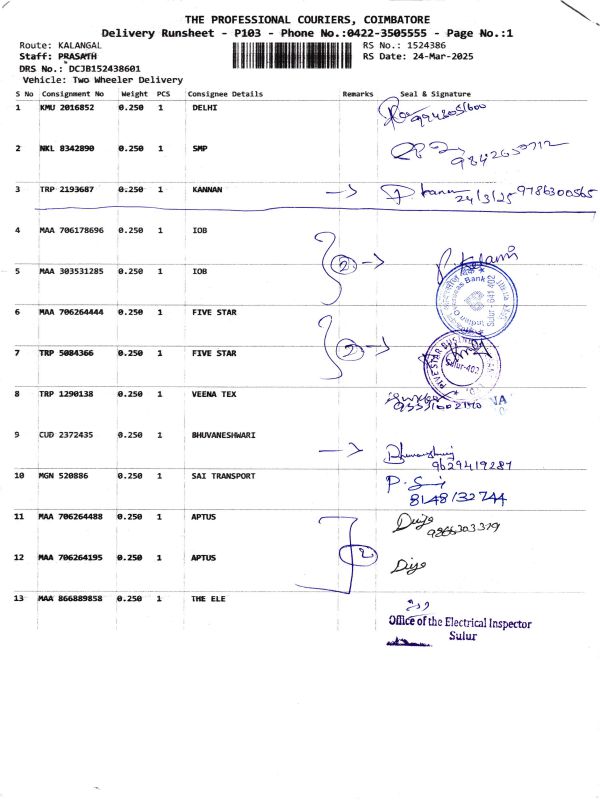 THE PROFESSIONAL COURIERS, COIMBATORE
Delivery Runsheet - P103 - Phone No.:0422-3505555 - Page No.:1
Route: KALANGAL RS No.: 1524386
Staff: PRASATH RS Date: 24-Mar-2025
DRS No.: DCJB152438601
Vehicle: Two Wheeler Delivery
S No Consignment No Weight PCS Consignee Details Remarks Seal & Signature
1 KMU 2016852 0.250 1 DELHI
2 NKL 8342890 0.250 1 SMP
3 TRP 2193687 0.250 1 KANNAN 24/3/25 9786300565
4 MAA 706178696 0.250 1 IOB
2
5 MAA 303531285 0.250 1 IOB
Sulur
6 MAA 706264444 0.250 1 FIVE STAR
2
7 TRP 5084366 0.250 1 FIVE STAR
Sulur-402
8 TRP 1290138 0.250 1 VEENA TEX
9 CUD 2372435 0.250 1 BHUVANESHWARI
9629419287
10 MGN 520886 0.250 1 SAI TRANSPORT
8148132744
11 MAA 706264488 0.250 1 APTUS
2
12 MAA 706264195 0.250 1 APTUS
13 MAA 866889858 0.250 1 THE ELE
Office of the Electrical Inspector
Sulur